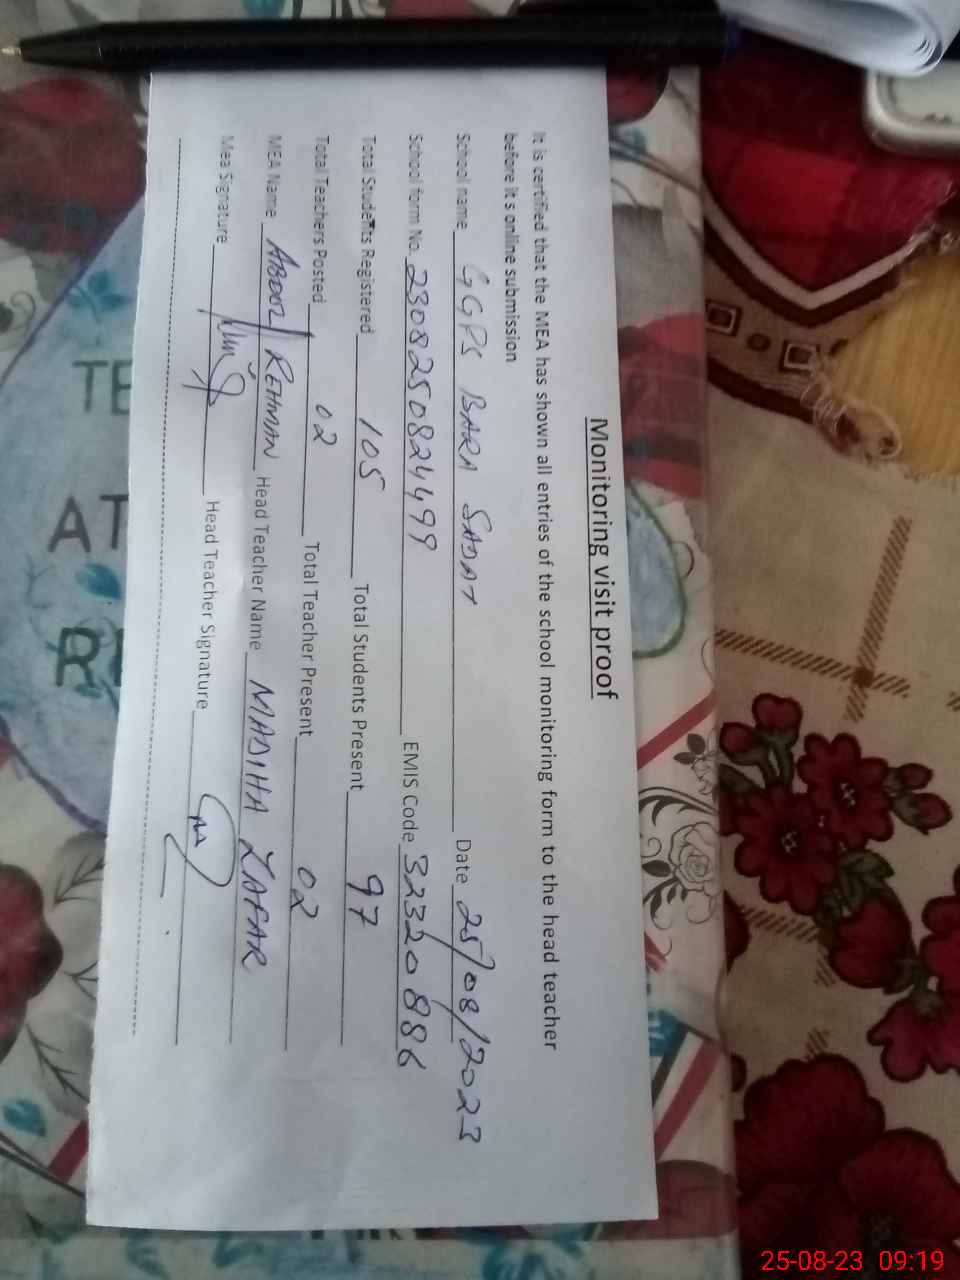 Monitoring visit proof
It is certified that the MEA has shown all entries of the school monitoring form to the head teacher
before it s online submission
School name GGPS BARA SADAT Date 25/08/2023
School form No. 2308250824499 EMIS Code 32320886
Total Students Registered 105 Total Students Present 97
Total Teachers Posted 02 Total Teacher Present 02
MEA Name ABDUL REHMAN Head Teacher Name MADIHA ZAFAR
Mea Signature Head Teacher Signature
TE
AT
R
25-08-23 09:19